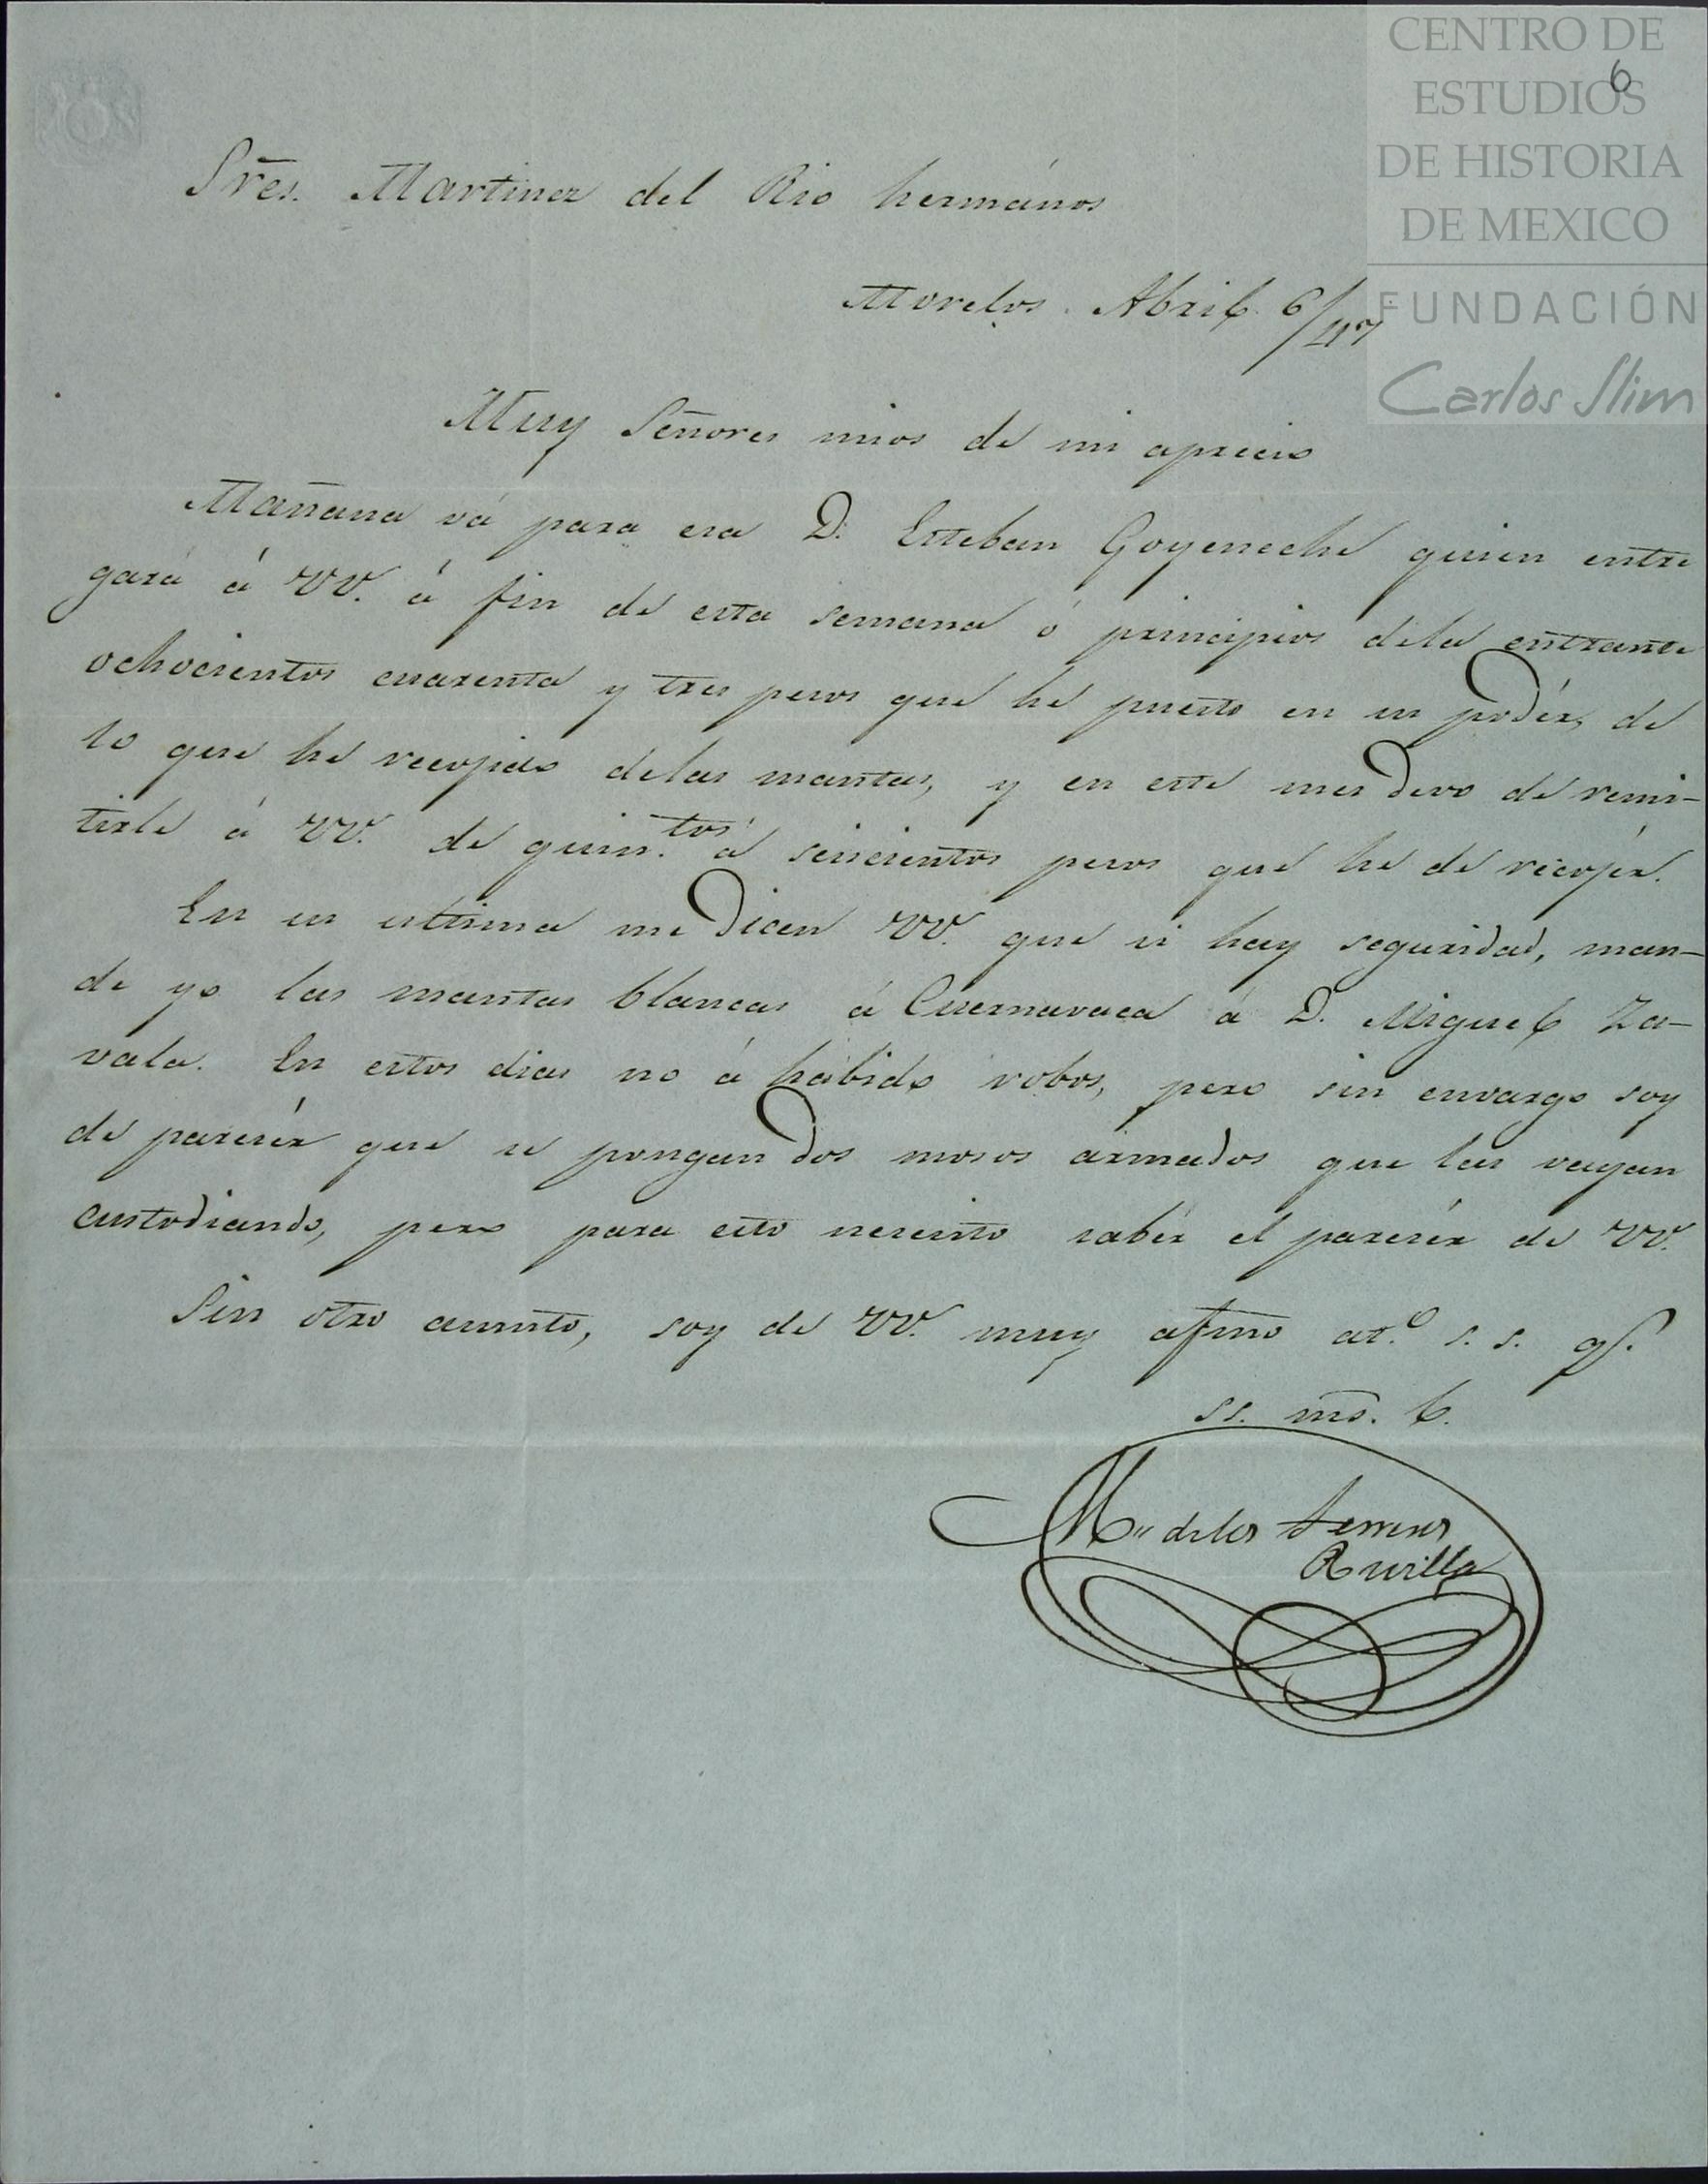 CENTRO DE
ESTUDIOS
DE HISTORIA
DE MEXICO
FUNDACIÓN
Carlos Slim
6
Sres. Martinez del Rio hermános
Morelos. Abril 6/47
Muy Señores mios de mi aprecio
Mañana vá para esa D. Esteban Goyeneche quien entre
gará á VV. á fin de esta semana ó principios dela entrante
ochocientos cuarenta y tres pesos que he puesto en su podér, de
lo que he recojido delas mantas, y en este mes devo de remi-
tirle á VV. de quin.tos á seiscientos pesos que he de recojér.
En su ultima me dicen VV. que si hay seguridad, man-
de yo las mantas blancas á Cuernavaca á D. Miguel Za-
vala. En estos dias no á habido robos, pero sin envargo soy
de paresér que se pongan dos mosos armados que las vayan
custodiando, pero para esto nesesito sabér el paresér de VV.
Sin otro asunto, soy de VV. muy afmo at.o s. s. q.
ss. ms. b.
M. delos
Ruvilla